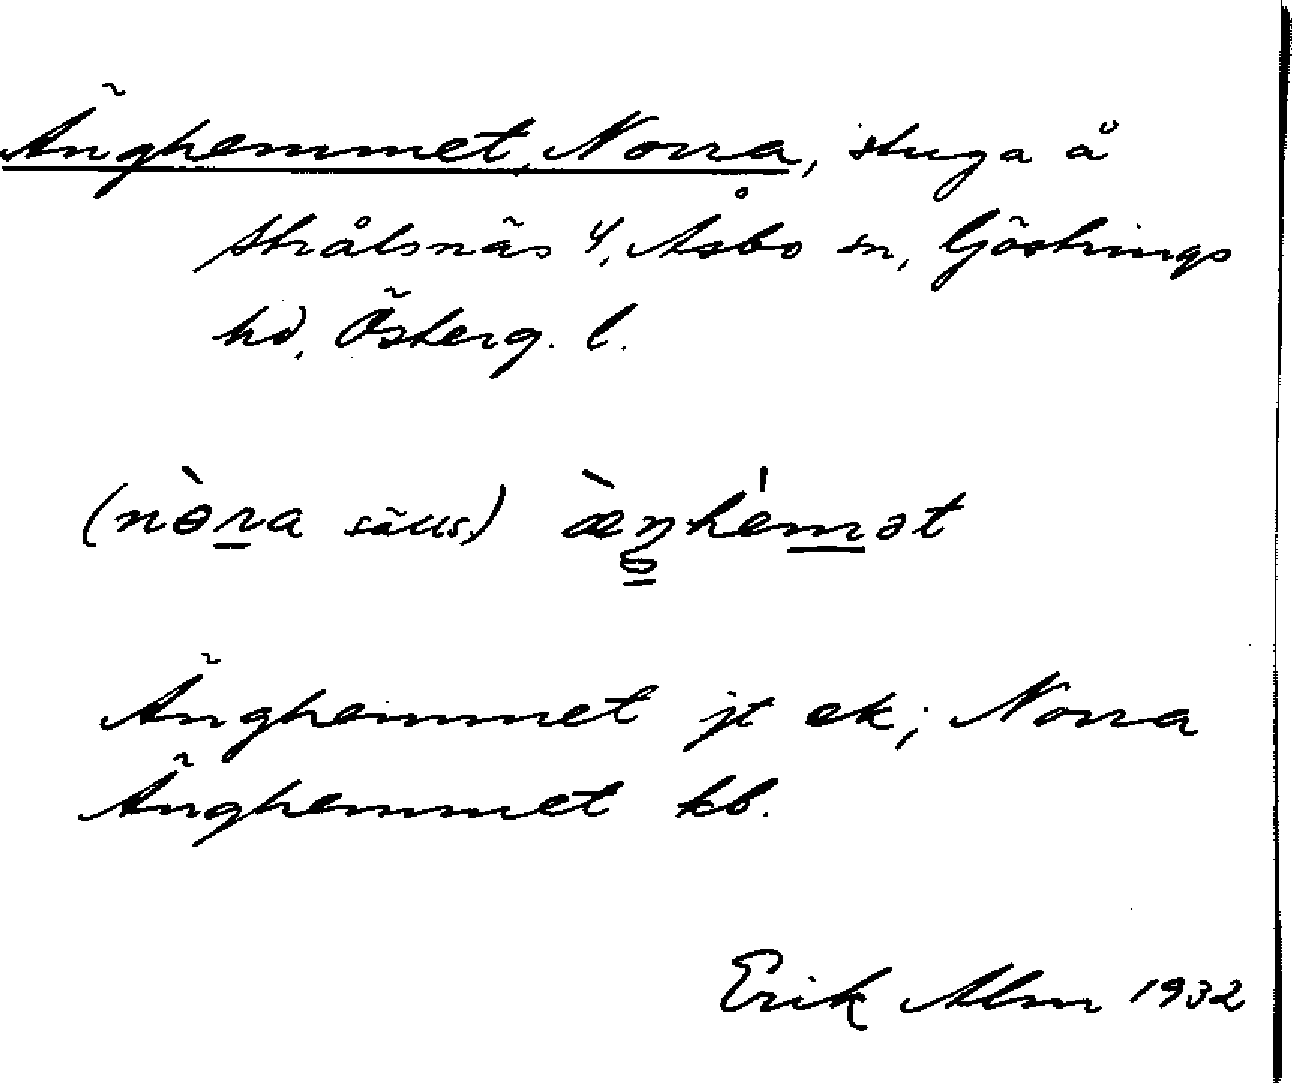 Änghemmet, Norra, stuga å
Strålsnäs 4, Åsbo sn, Göstrings
hd, Österg. l.
(nòra säus) æ̀ŋhémət
Änghemmet jt ek; Norra
Änghemmet kb.
Erik Alm 1932